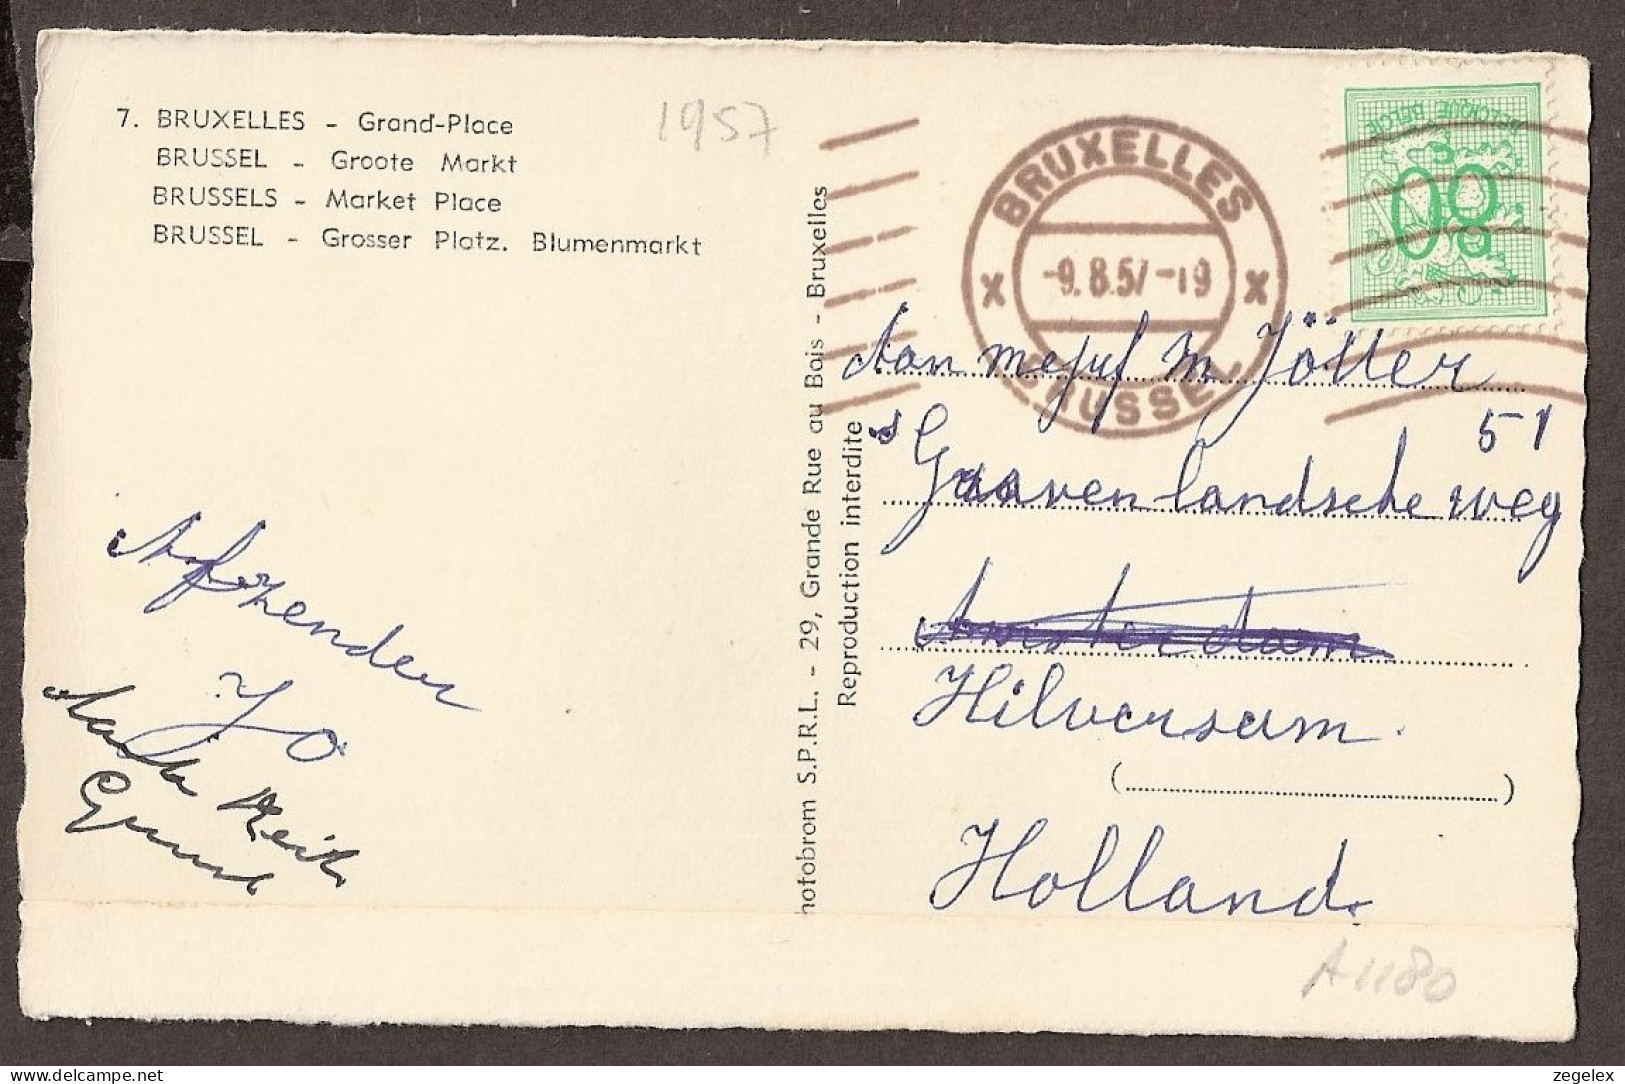 7. BRUXELLES - Grand-Place
BRUSSEL - Groote Markt
BRUSSELS - Market Place
BRUSSEL - Grosser Platz. Blumenmarkt
1957
BRUXELLES
x -9.8.57-19 x
BRUSSEL
BELGIQUE BELGIE
80
hotobrom S.P.R.L. - 29, Grande Rue au Bois - Bruxelles
Reproduction interdite
Aan mejuf M Jötter
's Graavenlandsche weg 51
Amsterdam
Hilversum.
(
)
Holland.
Afzender
Jo
A1180
zegelex